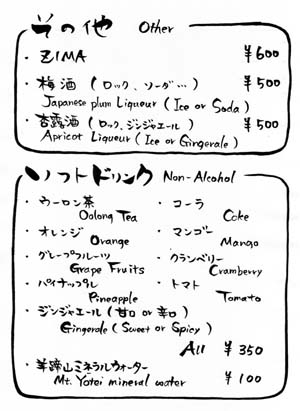 その他 Other
・ZIMA ¥600
・梅酒（ロック、ソーダ…） ¥500
Japanese plum Liqueur (Ice or Soda)
・杏露酒（ロック、ジンジャエール） ¥500
Apricot Liqueur (Ice or Gingerale)
ソフトドリンク Non-Alcohol
・ウーロン茶 ・コーラ
Oolong Tea Coke
・オレンジ ・マンゴー
Orange Mango
・グレープフルーツ ・クランベリー
Grape Fruits Cramberry
・パイナップル ・トマト
Pineapple Tomato
・ジンジャエール（甘口 or 辛口）
Gingerale (Sweet or Spicy)
All ¥350
・羊蹄山ミネラルウォーター
Mt. Yotei mineral water ¥100